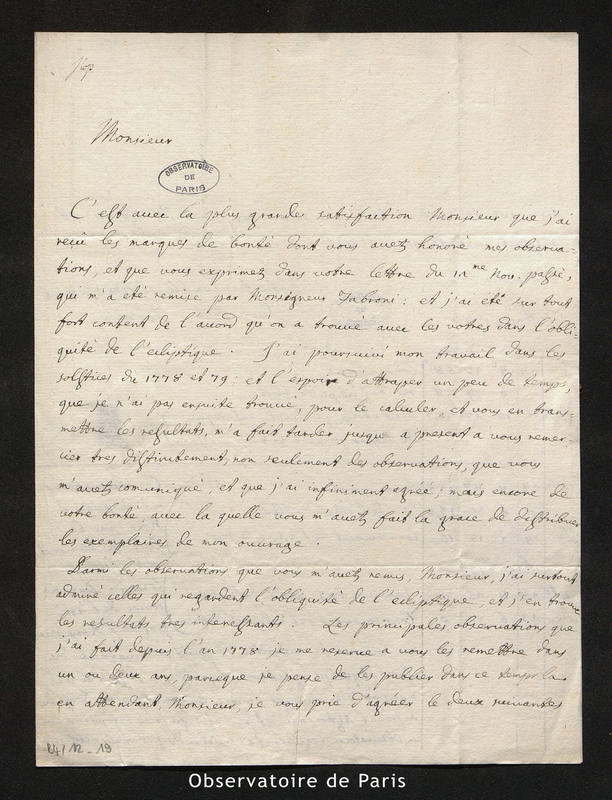 Monsieur
OBSERVATOIRE
DE
PARIS
C'est avec la plus grande satisfaction Monsieur que j'ai
reçû les marques de bonté dont vous avetz honoré mes observa-
tions, et que vous exprimez dans votre lettre du 12me Nov. passé,
qui m'a été remise par Monseigneur Fabroni: et j'ai été sur tout
fort content de l'acord qu'on a trouvé avec les votres dans l'obli-
quité de l'ecliptique. J'ai poursuivi mon travail dans les
solstices du 1778 et 79: et l'espoir d'attraper un peu de temps,
que je n'ai pas ensuite trouvé, pour le calculer, et vous en trans-
mettre les resultats, m'a fait tarder jusque a present a vous remer-
cier tres distintement, non seulement des observations, que vous
m'avetz comuniqué, et que j'ai infiniment agréé; mais encore de
votre bonté, avec la quelle vous m'avetz fait la grace de distribuer
les exemplaires de mon ouvrage.
Parmi les observations que vous m'avetz remis, Monsieur, j'ai surtout
admiré celles qui regardent l'obliquité de l'ecliptique, et j'en trouve
les resultats tres interessants. Les principales observations que
j'ai fait depuis l'an 1778 je me reserve a vous les remettre dans
un ou deux ans, parceque je pense de les publier dans ce temps la
en attendant, Monsieur, je vous prie d'agréer le deux suivantes
B4/12-19
Observatoire de Paris